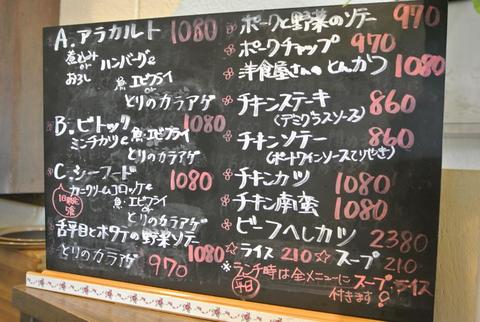 A. アラカルト 1080
煮込み or おろし ハンバーグと
魚、エビフライ
or
とりのカラアゲ
B. ビトック 1080
ミンチカツと 魚、エビフライ
or
とりのカラアゲ
C. シーフード 1080
カニクリームコロッケと
魚、エビフライ
or
とりのカラアゲ
舌平目とホタテの野菜ソテー
1080
とりのカラアゲ 970
ポークと野菜のソテー 970
ポークチャップ 970
洋食屋さんのとんかつ 1080
チキンステーキ 860
(デミグラスソース)
チキンソテー 860
(ポートワインソースてりやき)
チキンカツ 1080
チキン南蛮 1080
ビーフヘレカツ 2380
☆ライス 210 ☆スープ 210
※ランチ時は全メニューにスープ、ライス
平日 付きます!